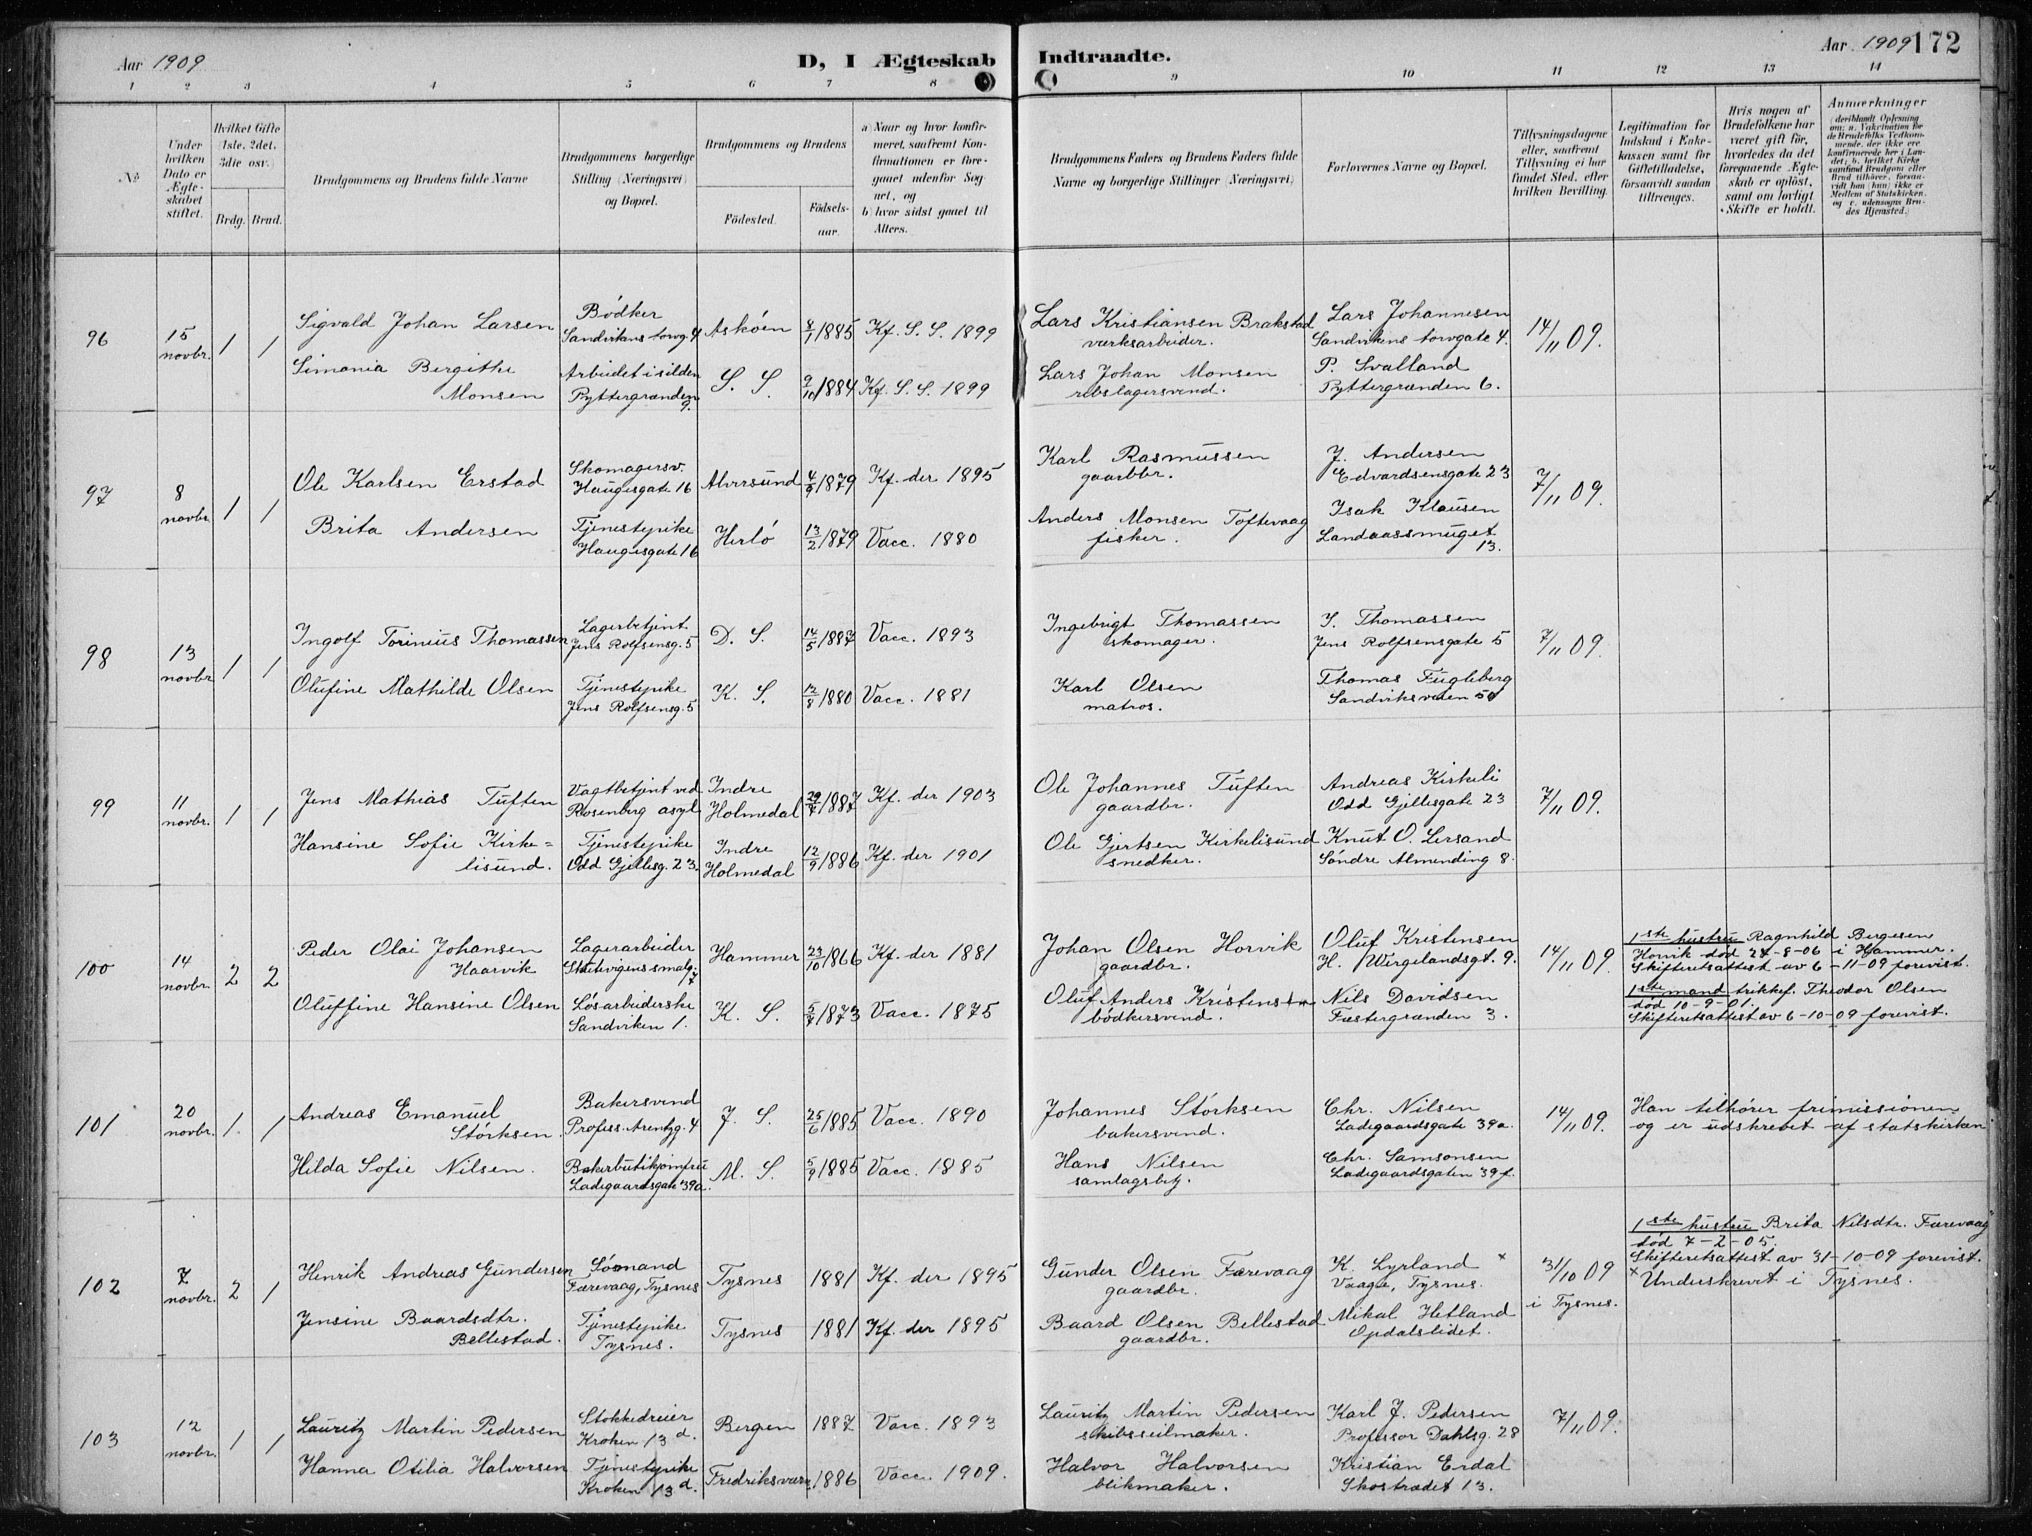 Aar 1909
D, I Ægteskab Indtraadte.
Aar 1909 172
1 2 3 4 5 6 7 8 9 10 11 12 13 14
No
Under hvilken Dato er Ægteskabet stiftet.
Hvilket Gifte (1ste, 2det, 3die osv.)
Brdg. Brud.
Brudgommens og Brudens fulde Navne
Brudgommens borgerlige Stilling (Næringsvei) og Bopæl.
Brudgommens og Brudens
Födested.
Födselsaar.
a) Naar og hvor konfirmeret, saafremt Konfirmationen er foregaaet udenfor Sognet, og
b) hvor sidst gaaet til Alters.
Brudgommens Faders og Brudens Faders fulde Navne og borgerlige Stillinger (Næringsvei)
Forlovernes Navne og Bopæl.
Tillysningsdagene eller, saafremt Tillysning ei har fundet Sted, efter hvilken Bevilling.
Legitimation for Indskud i Enkekassen samt for Giftetilladelse, forsaavidt saadan tiltrænges.
Hvis nogen af Brudefolkene har været gift för, hvorledes da det foregaaende Ægteskab er oplöst, samt om lovligt Skifte er holdt.
Anmærkninger
96
15 novbr.
1 1
Sigvald Johan Larsen
Bödker
Sandvikens torvg. 4
Asköen
8/1 1885
Kf. S. S. 1899
Lars Kristiansen Brakstad
værksarbeider.
Lars Johannesen
Sandvikens torvgate 4.
14/11 09.
Simonia Bergithe
Monsen
Arbeidet i silden
Pyttergrænden
9.
S. S.
9/10 1884
Kf. S. S. 1899
Lars Johan Monsen
rebslagersvend.
P. Svalland
Pyttergrænden 6.
97
8 novbr.
1 1
Ole Karlsen Erstad
Skomagersv.
Haugesgate 16
Alversund
4/9 1879
Kf. der 1895
Karl Rasmussen
gaardbr.
J. Andersen
Edvardsensgate 23
7/11 09.
Brita Andersen
Tjenestepike
Haugesgate 16
Herlö
13/2 1879
Vacc. 1880
Anders Monsen Toftevaag
fisker.
Isak Klausen
Landaassmuget
13.
98
13 novbr.
1 1
Ingolf Torinius Thomassen
Lagerbetjent
Jens Rolfsensg. 5
D. S.
14/5 1887
Vacc. 1893
Ingebrigt Thomassen
skomager.
I. Thomassen
Jens Rolfsensgate 5
7/11 09.
Olufine Mathilde Olsen
Tjenestepike
Jens Rolfsensg. 5
K. S.
12/8 1880
Vacc. 1881
Karl Olsen
matros.
Thomas Fugleberg
Sandviksveien 50
99
11 novbr.
1 1
Jens Mathias Tuften
Vagtbetjent ved
Rosenberg asyl
Indre
Holmedal
29/7 1887
Kf. der 1903
Ole Johannes Tuften
gaardbr.
Andreas Kirkeli
Odd Gjellesgate 23
7/11 09.
Hansine Sofie Kirke=
lisund.
Tjenestepike
Odd Gjellesg. 23.
Indre
Holmedal
12/9 1886
Kf. der 1901
Ole Gjertsen Kirkelisund
snedker.
Knut O. Lersand
Söndre Almending 8.
100
14 novbr.
2 2
Peder Olai Johansen
Haarvik
Lagerarbeider
Skutevigens smalg.
7
Hammer
23/10 1866
Kf. der 1881
Johan Olsen Horvik
gaardbr.
Oluf Kristensen
H. Wergelandsgt. 9.
14/11 09.
1ste hustru Ragnhild Bergesen
Horvik död 28-8-06 i Hammer.
Skifteretsattest av 6-11-09 forevist.
Oluffine Hansine Olsen
Lösarbeiderske
Sandviken 1.
K. S.
5/7 1873
Vacc. 1875
Oluf Anders Kristensen
bödkersvend.
Nils Davidsen
Fæstergrænden 3.
1ste mand trikkef. Theodor Olsen
död 10-9-01.
Skifteretsattest av 6-10-09 forevist.
101
20 novbr.
1. 1
Andreas Emanuel
Störksen.
Bakersvend
Profess. Arentzg. 4
J. S.
25/6 1885
Vacc. 1890
Johannes Störksen
bakersvend.
Chr. Nilsen
Ladegaardsgate 39a.
14/11 09.
Han tilhörer frimissionen
og er udskrevet af statskirken
Hilda Sofie Nilsen.
Bakerbutikjomfru
Ladegaardsgate 39a.
M. S.
5/9 1885
Vacc. 1885
Hans Nilsen
samlagsbetj.
Chr. Samsonsen
Ladegaardsgaten 39f.
102
7 novbr.
2 1
Henrik Andreas Gundersen
Sömand
Færevaag, Tysnes
Tysnes
1881
Kf. der 1895
Gunder Olsen Færevaag
gaardbr.
K. Lyrland ×
Vaage, Tysnes.
31/10 09
i Tysnes.
1ste hustru Brita Nilsdtr. Færevaag
död 7-2-05.
Skifteretsattest av 31-10-09 forevist.
× Underskrevet i Tysnes.
Jensine Baardsdtr.
Bellestad.
Tjenestepike
Tysnes.
Tysnes
1881
Kf. der 1895
Baard Olsen Bellestad
gaardbr.
Mikal Hetland
Opdalslidet.
103
12 novbr.
1 1
Lauritz Martin Pedersen
Stokkedreier
Kroken 13 d.
Bergen
1887
Vacc. 1893
Lauritz Martin Pedersen
skibsseilmaker.
Karl J. Pedersen
Professor Dahlsg. 28
7/11 09.
Hanna Otilia Halvorsen
Tjenestepike
Kroken 13 d.
Fredriksværn
1886
Vacc. 1909.
Halvor Halvorsen
blikmaker.
Kristian Erdal
Skostrædet 13.